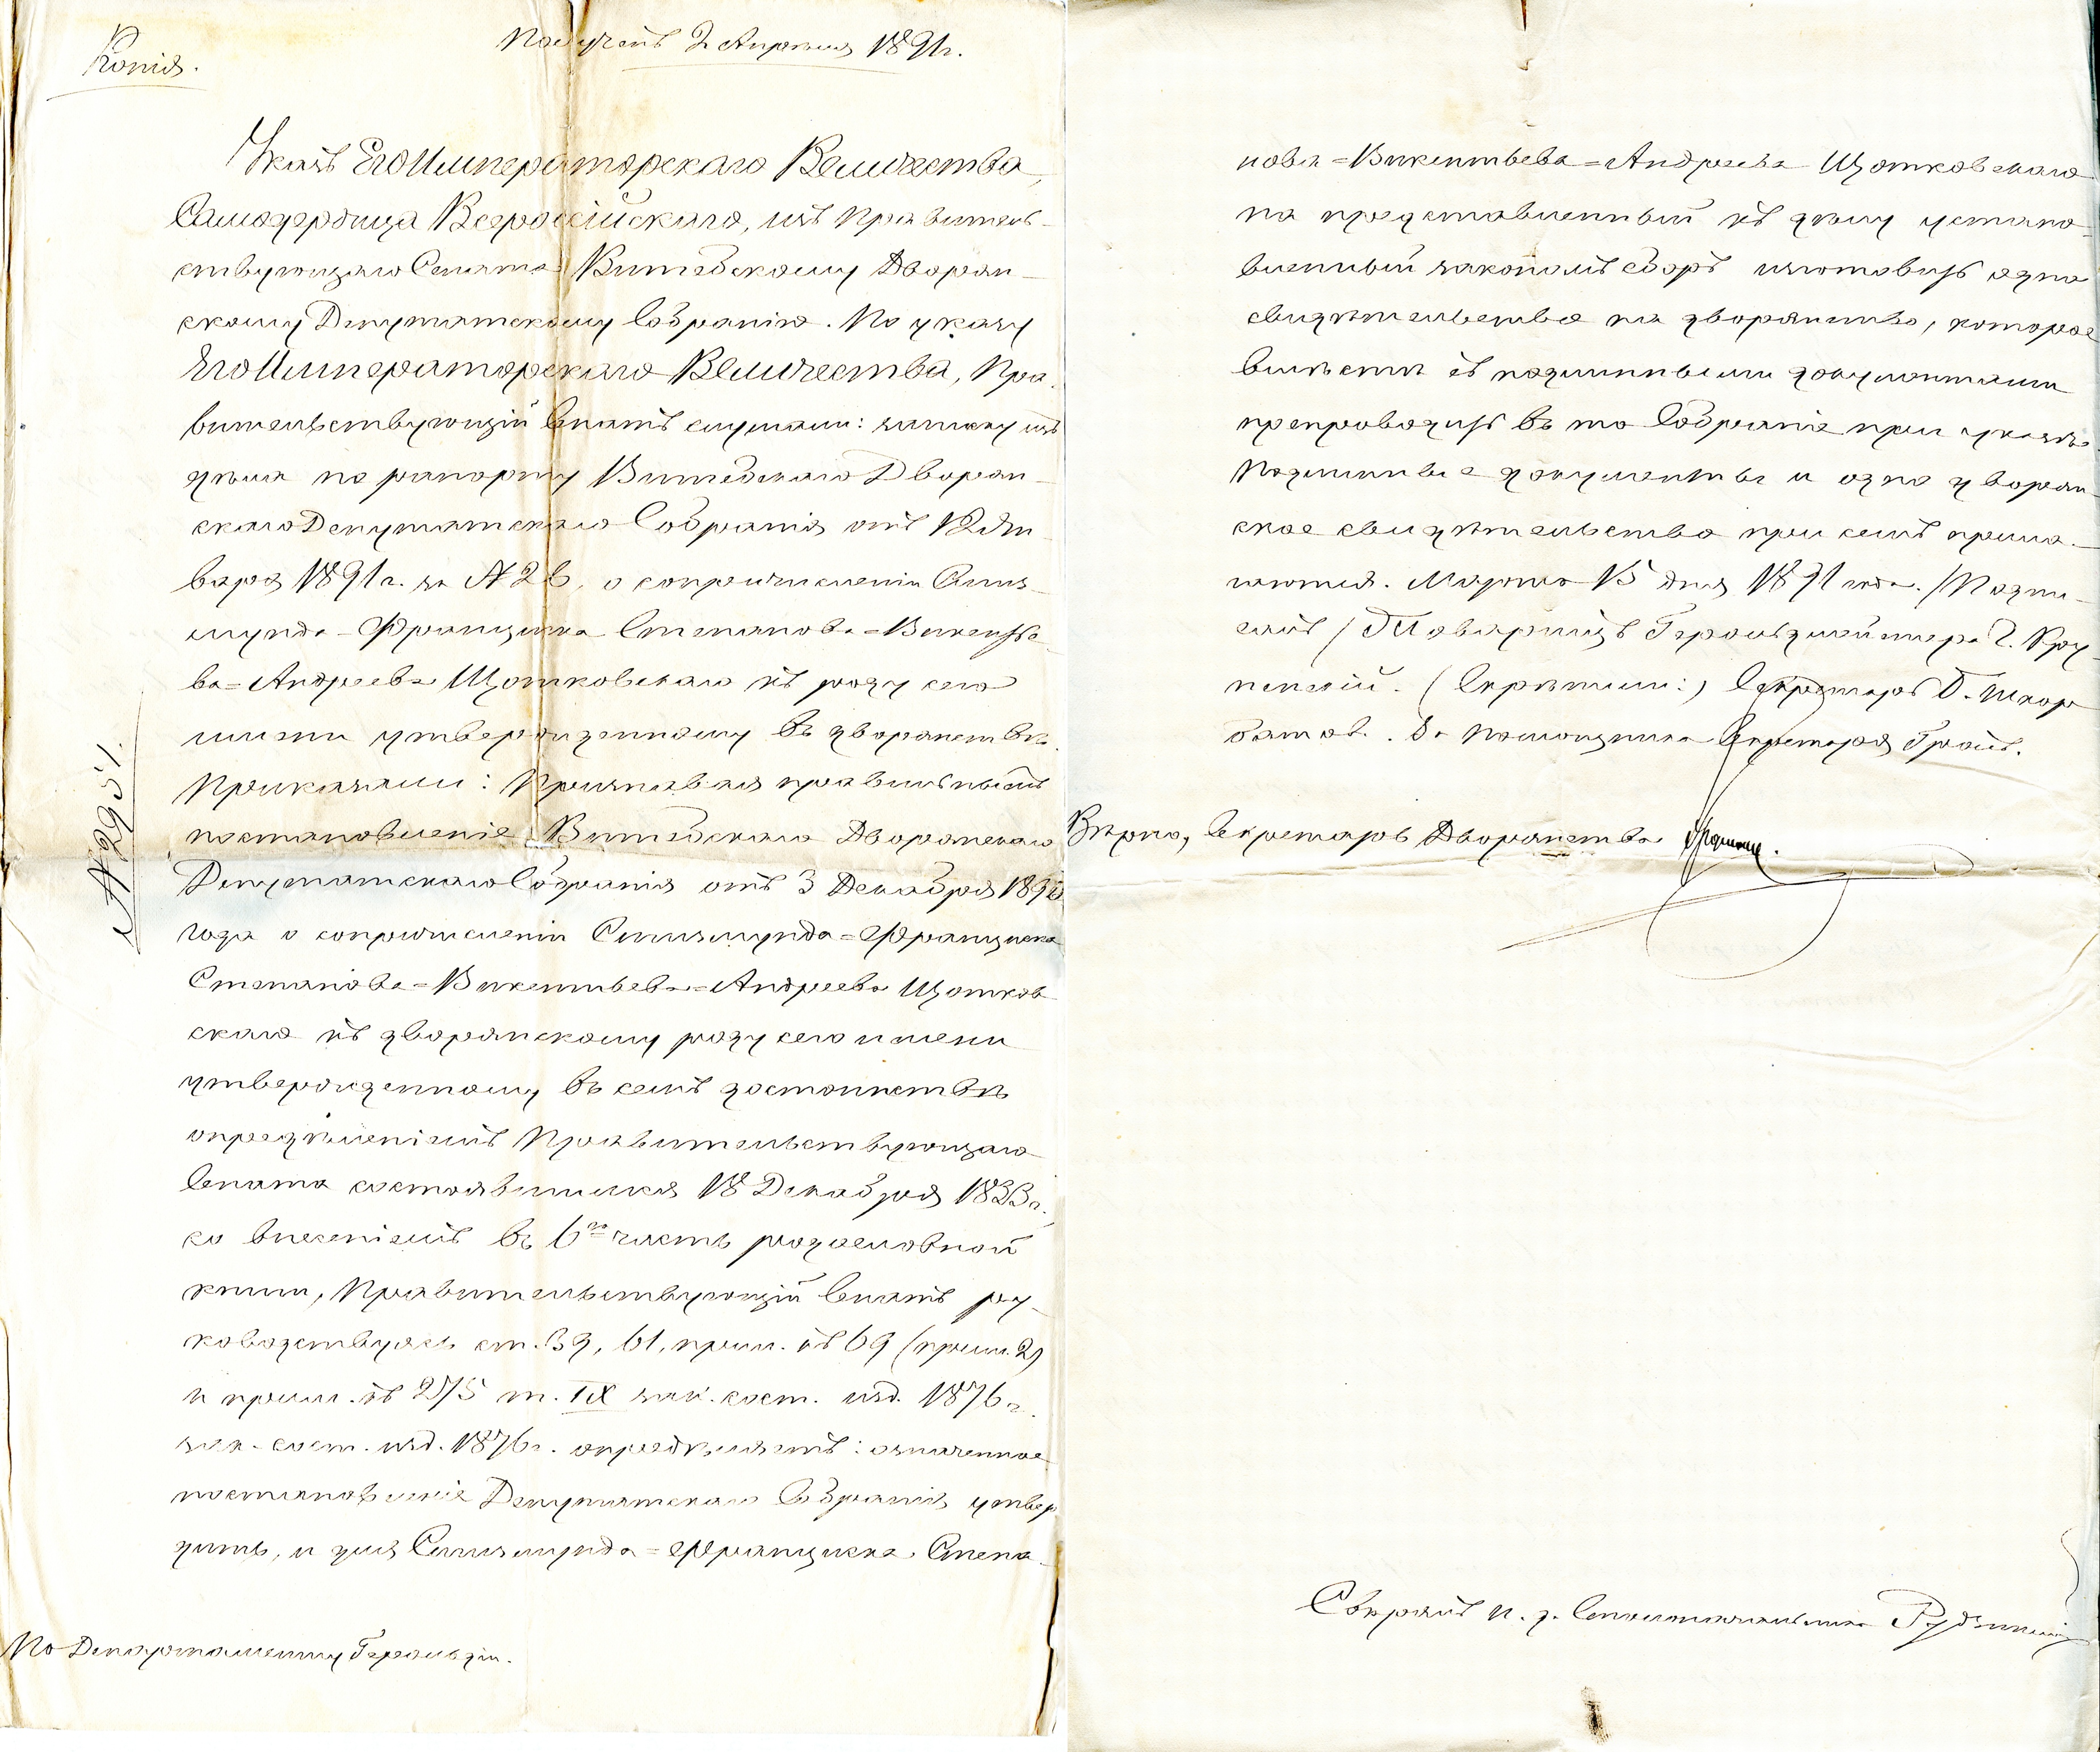 Копія.
Полученъ 2 Апрѣля 1891 г.
Указъ Его Императорскаго Величества,
Самодержца Всероссійскаго, изъ Правитель-
ствующаго Сената Витебскому Дворян-
скому Депутатскому Собранію. По указу
Его Императорскаго Величества, Пра-
вительствующій Сенатъ слушали: записку изъ
дѣла по рапорту Витебскаго Дворян-
скаго Депутатскаго Собранія отъ 12 Ян-
варя 1891 г. за № 26, о сопричисленіи Сигиз-
мунда-Франциска Степанова=Викентье-
ва=Андреева Щотковскаго къ роду сего
имени утвержденному въ дворянствѣ.
Приказали: Признавая правильнымъ
постановленіе Витебскаго Дворянскаго
Депутатскаго Собранія отъ 3 Декабря 1890
года о сопричисленіи Сигизмунда=Франциска
Степанова=Викентьева=Андреева Щотков-
скаго къ дворянскому роду сего имени
утвержденному въ семъ достоинствѣ
опредѣленіемъ Правительствующаго
Сената состоявшимся 18 Декабря 1833 г.
со внесеніемъ въ 6ю часть родословной
книги, Правительствующій Сенатъ ру-
ководствуясь ст. 39, 61, прим. къ 69 (прим. 2)
и прим. къ 275 т. IX зак. сост. изд. 1876 г.
зак. сост. изд. 1876 г. опредѣляетъ: означенное
постановленіе Депутатскаго Собранія утвер-
дить, и для Сигизмунда=Франциска Степа-
№ 2951.
По Департаменту Герольдіи.
нова=Викентьева=Андреева Щотковскаго
на представленный къ дѣлу устано-
вленный закономъ сборъ изготовить одно
свидѣтельство на дворянство, которое
вмѣстѣ съ подлинными документами
препроводить въ то Собраніе при указѣ.
Подлинные документы и одно дворян-
ское свидѣтельство при семъ прила-
гаются. Марта 15 дня 1891 года. (Подпи-
салъ) Товарищъ Герольдмейстера Г. Кру-
пенскій. (Скрѣпили:) Секретарь
Помощника Секретаря
Вѣрно, Секретарь Дворянства
Свѣрялъ и. д. Столоначальника